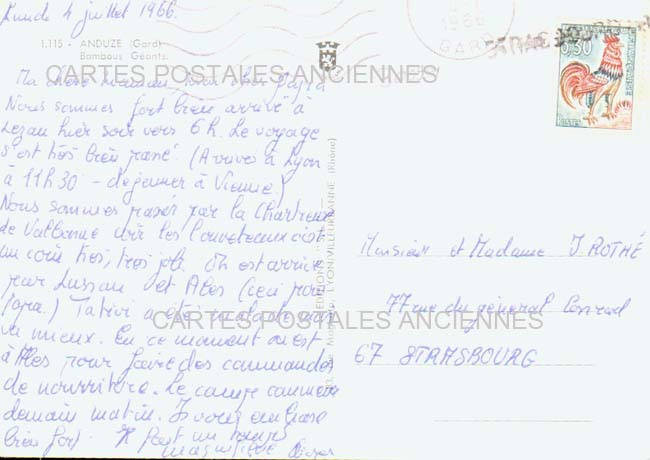 Lundi 4 juillet 1966.
1.115 - ANDUZE (Gard)
Bambous Géants.
CARTES POSTALES ANCIENNES
Ma chère Maman, mon cher Papa
Nous sommes fort bien arrivé à
Lezan hier soir vers 6h. Le voyage
s'est très bien passé. (Arrivés à Lyon
à 11h30 - déjeuner à Vienne)
Nous sommes passés par la Chartreuse
de Valbonne voir les louveteaux c'est
un coin très, très joli. On est arrivé
par Lussan et Ales (ceci pour
Papa.) Tativi a été malade
va mieux. En ce moment on est
à Ales pour faire des commandes
de nourriture. Le camp commence
demain matin. Je vous embrasse
bien fort. Il fait un temps
magnifique
EDITIONS
LYON-VILLEURBANNE (Rhône)
1966
GARD
0,30
Monsieur et Madame J ROTHÉ
77 rue du général Conrad
CARTES POSTALES ANCIENNES
67 STRASBOURG